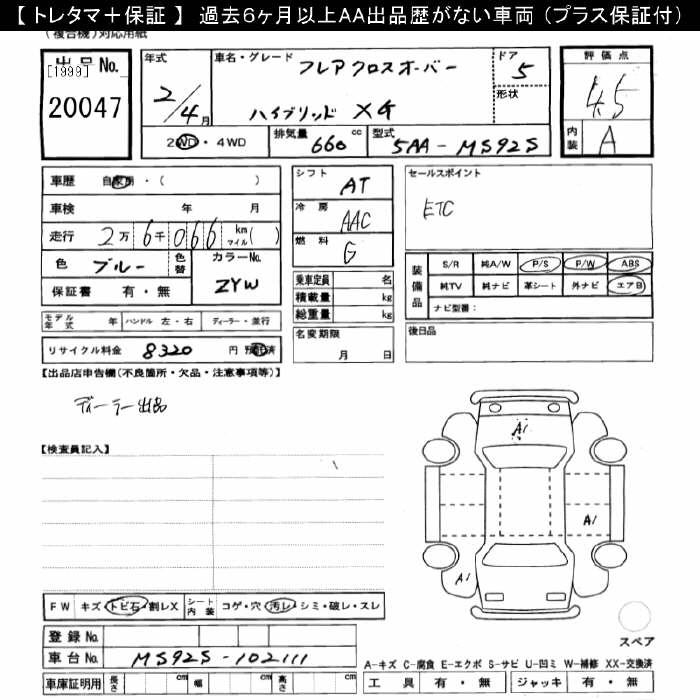 【トレタマ＋保証】 過去6ヶ月以上AA出品歴がない車両 (プラス保証付)
(複合機)対応用紙
出品No.
[1999]
20047
年式
2/4月
車名・グレード
フレアクロスオーバー
ハイブリッド XG
ドア
5
形状
評価点
4.5
内装
A
2WD・4WD
排気量 660 cc
型式 5AA-MS92S
車歴 自家用・( )
車検 年 月
走行 2万6千066 km マイル( )
色 ブルー 色替
カラーNo. ZYW
保証書 有・無
モデル年式 年 ハンドル 左・右 ディーラー・並行
リサイクル料金 8320 円 預託済
シフト AT
冷房 AAC
燃料 G
乗車定員 名
積載量 kg
総重量 kg
名変期限
月 日
セールスポイント
ETC
装備品
S/R 純A/W P/S P/W ABS
純TV 純ナビ 革シート 外ナビ エアB
ナビ型番:
後日品
【出品店申告欄(不良箇所・欠品・注意事項等)】
ディーラー出品
【検査員記入】
A1
A1
A1
FW キズ・トビ石・割レX シート内装 コゲ・穴・汚レ・シミ・破レ・スレ
登録No.
車台No. MS92S-102111
車庫証明用 長さ cm 幅 cm 高さ cm
スペア
A-キズ C-腐食 E-エクボ S-サビ U-凹ミ W-補修 XX-交換済
工具 有・無 ジャッキ 有・無